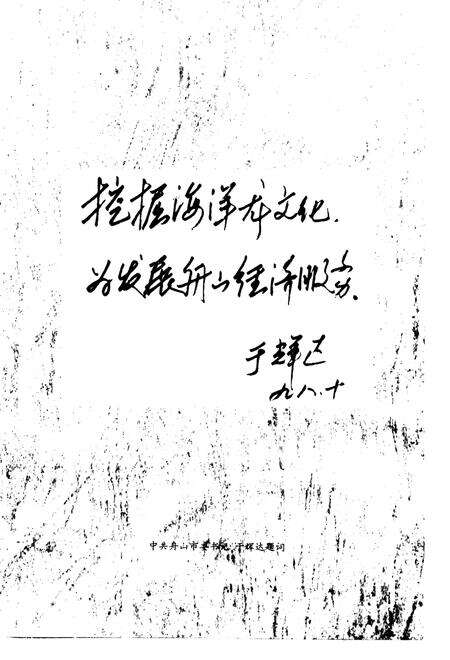 挖掘海洋龙文化.
为发展舟山经济服务.
于辉达
九八.十
中共舟山市委书记 于辉达题词